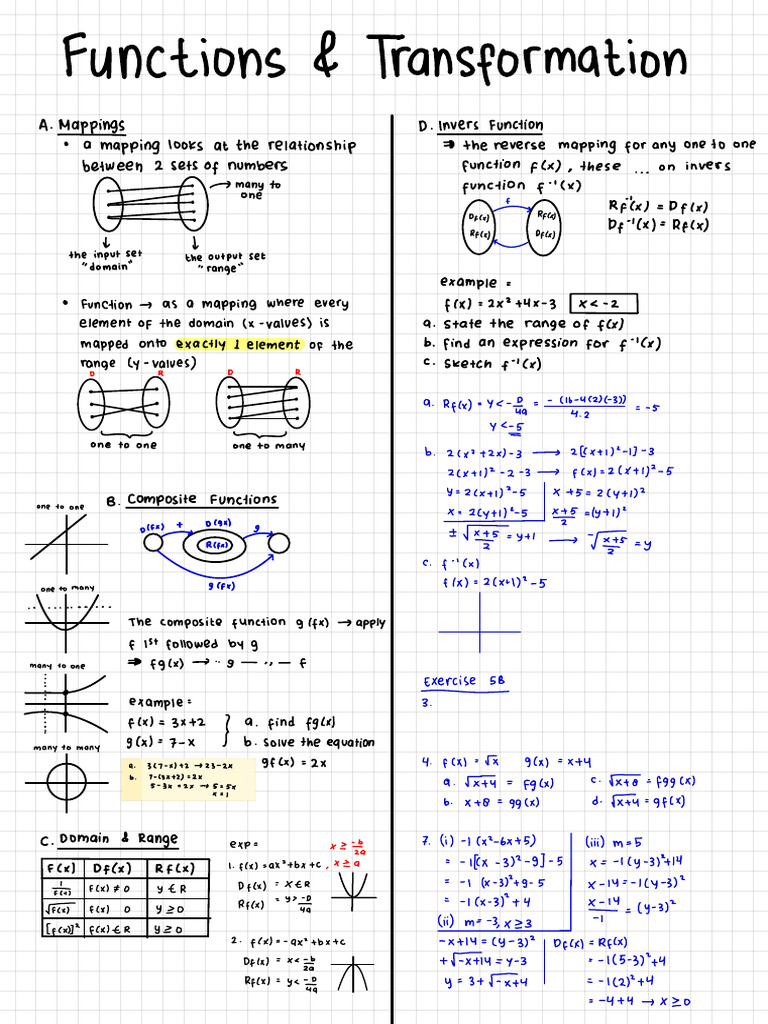 Functions & Transformation
A. Mappings
• a mapping looks at the relationship
between 2 sets of numbers
→ many to
one
the input set
"domain"
the output set
"range"
• Function → as a mapping where every
element of the domain (x-values) is
mapped onto exactly 1 element of the
range (y-values)
D R
D R
one to one
one to many
B. Composite Functions
one to one
D(fx) + D(gx) g
R(fx)
g(fx)
one to many
The composite function g(fx) → apply
f 1st followed by g
⇒ fg(x) → ·· g — ·,· — f
many to one
example =
f(x) = 3x+2
g(x) = 7-x
a. find fg(x)
b. solve the equation
gf(x) = 2x
many to many
a. 3(7-x)+2 → 23-2x
b. 7-(3x+2)=2x
5-3x=2x → 5=5x
x=1
C. Domain & Range
F(x) Df(x) Rf(x)
1/f(x) f(x) ≠ 0 y ∈ R
√f(x) f(x) 0 y ≥ 0
[f(x)]² f(x) ∈ R y ≥ 0
exp=
x ≥ -b/2a
1. f(x) = ax²+bx+c, x ≥ a
Df(x) = x ∈ R
Rf(x) = y > -D/4a
2. f(x) = -ax²+bx+c
Df(x) = x < -b/2a
Rf(x) = y < -D/4a
D. Invers Function
⇒ the reverse mapping for any one to one
function f(x), these ... on invers
function f⁻¹(x)
f
Df(x) Rf(x)
Rf(x) Df(x)
Rf⁻¹(x) = Df(x)
Df⁻¹(x) = Rf(x)
example =
f(x) = 2x²+4x-3 x < -2
a. state the range of f(x)
b. find an expression for f⁻¹(x)
c. sketch f⁻¹(x)
a. Rf(x) = y < -D/4a = -(16-4(2)(-3))/4.2 = -5
y < -5
b. 2(x²+2x)-3 → 2[(x+1)²-1]-3
2(x+1)²-2-3 → f(x)=2(x+1)²-5
y=2(x+1)²-5 x+5=2(y+1)²
x=2(y+1)²-5 (x+5)/2=(y+1)²
±√((x+5)/2)=y+1 → -√((x+5)/2)=y
c. f⁻¹(x)
f(x)=2(x+1)²-5
Exercise 5B
3.
4. f(x)=√x g(x)=x+4
a. √x+4 = fg(x) c. √x+8 = fgg(x)
b. x+8 = gg(x) d. √x+4 = gf(x)
7. (i) -1(x²-6x+5)
= -1[(x-3)²-9]-5
= -1 (x-3)²+9-5
= -1(x-3)²+4
(ii) m=-3, x≥3
-x+14=(y-3)²
+√-x+14=y-3
y=3+√-x+4
(iii) m=5
x=-1(y-3)²+14
x-14=-1(y-3)²
(x-14)/-1=(y-3)²
Df(x) = Rf(x)
=-1(5-3)²+4
=-1(2)²+4
=-4+4 → x≥0